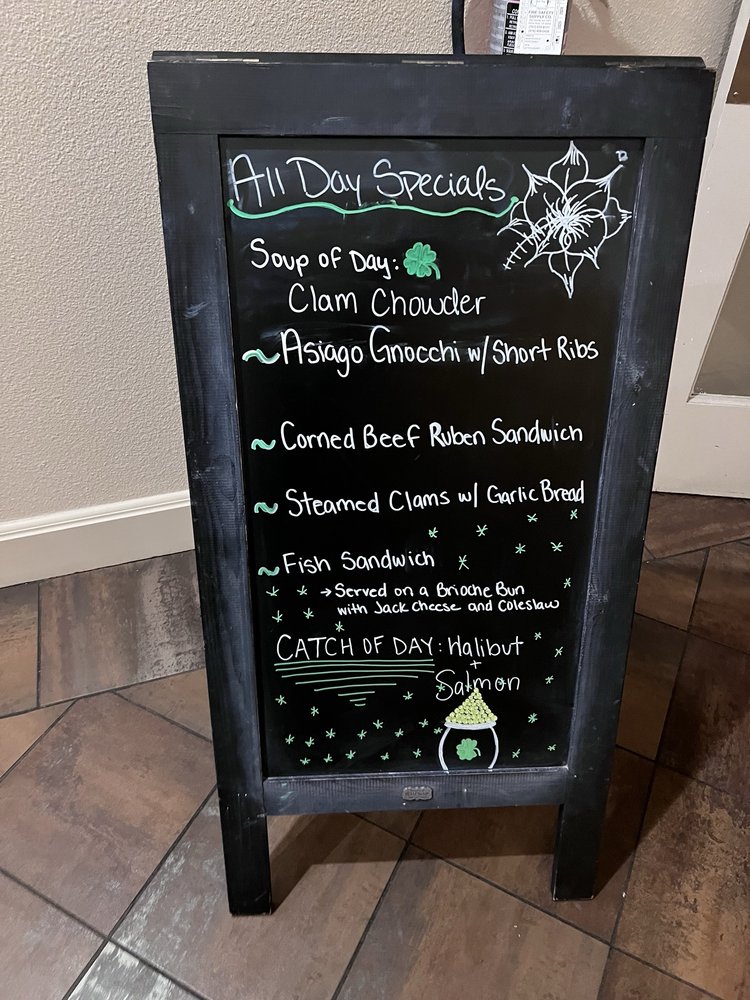 All Day Specials
Soup of Day:
Clam Chowder
~Asiago Gnocchi w/Short Ribs
~ Corned Beef Ruben Sandwich
~ Steamed Clams w/ Garlic Bread
~ Fish Sandwich
→ Served on a Brioche Bun
with Jack cheese and Coleslaw
CATCH OF DAY: Halibut
+
Salmon